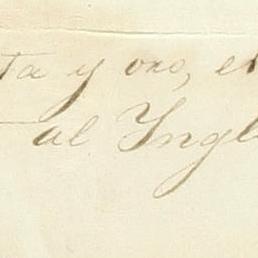 ta y oro, el
al Ingl